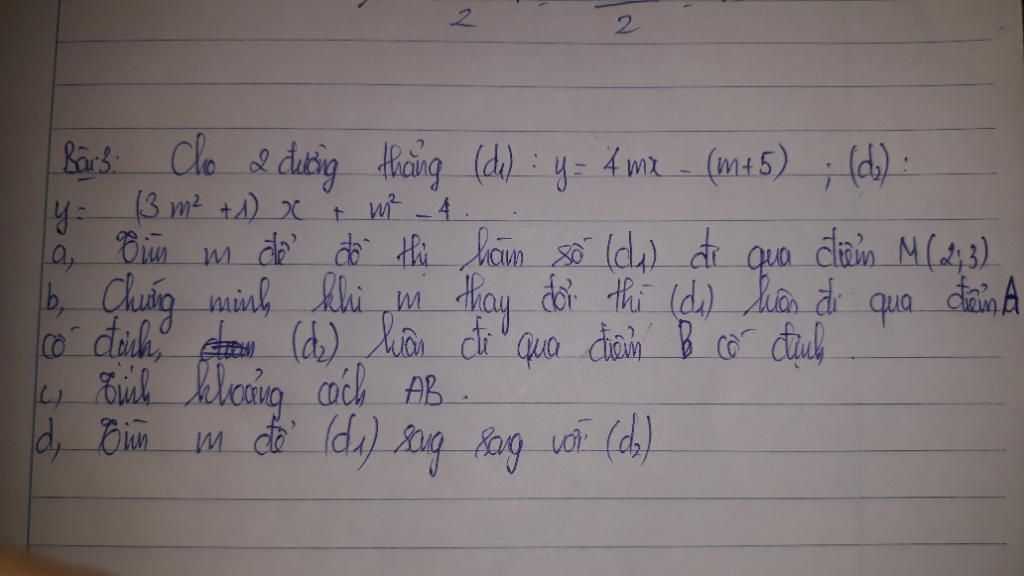 2 2
Bài 3: Cho 2 đường thẳng (d1) : y = 4mx - (m+5) ; (d2) :
y = (3m² + 1) x + m² - 4 .
a, Tìm m để đồ thị hàm số (d1) đi qua điểm M(2;3)
b, Chứng minh khi m thay đổi thì (d1) luôn đi qua điểm A
cố định, (d2) luôn đi qua điểm B cố định .
c, Tính khoảng cách AB .
d, Tìm m để (d1) song song với (d2)